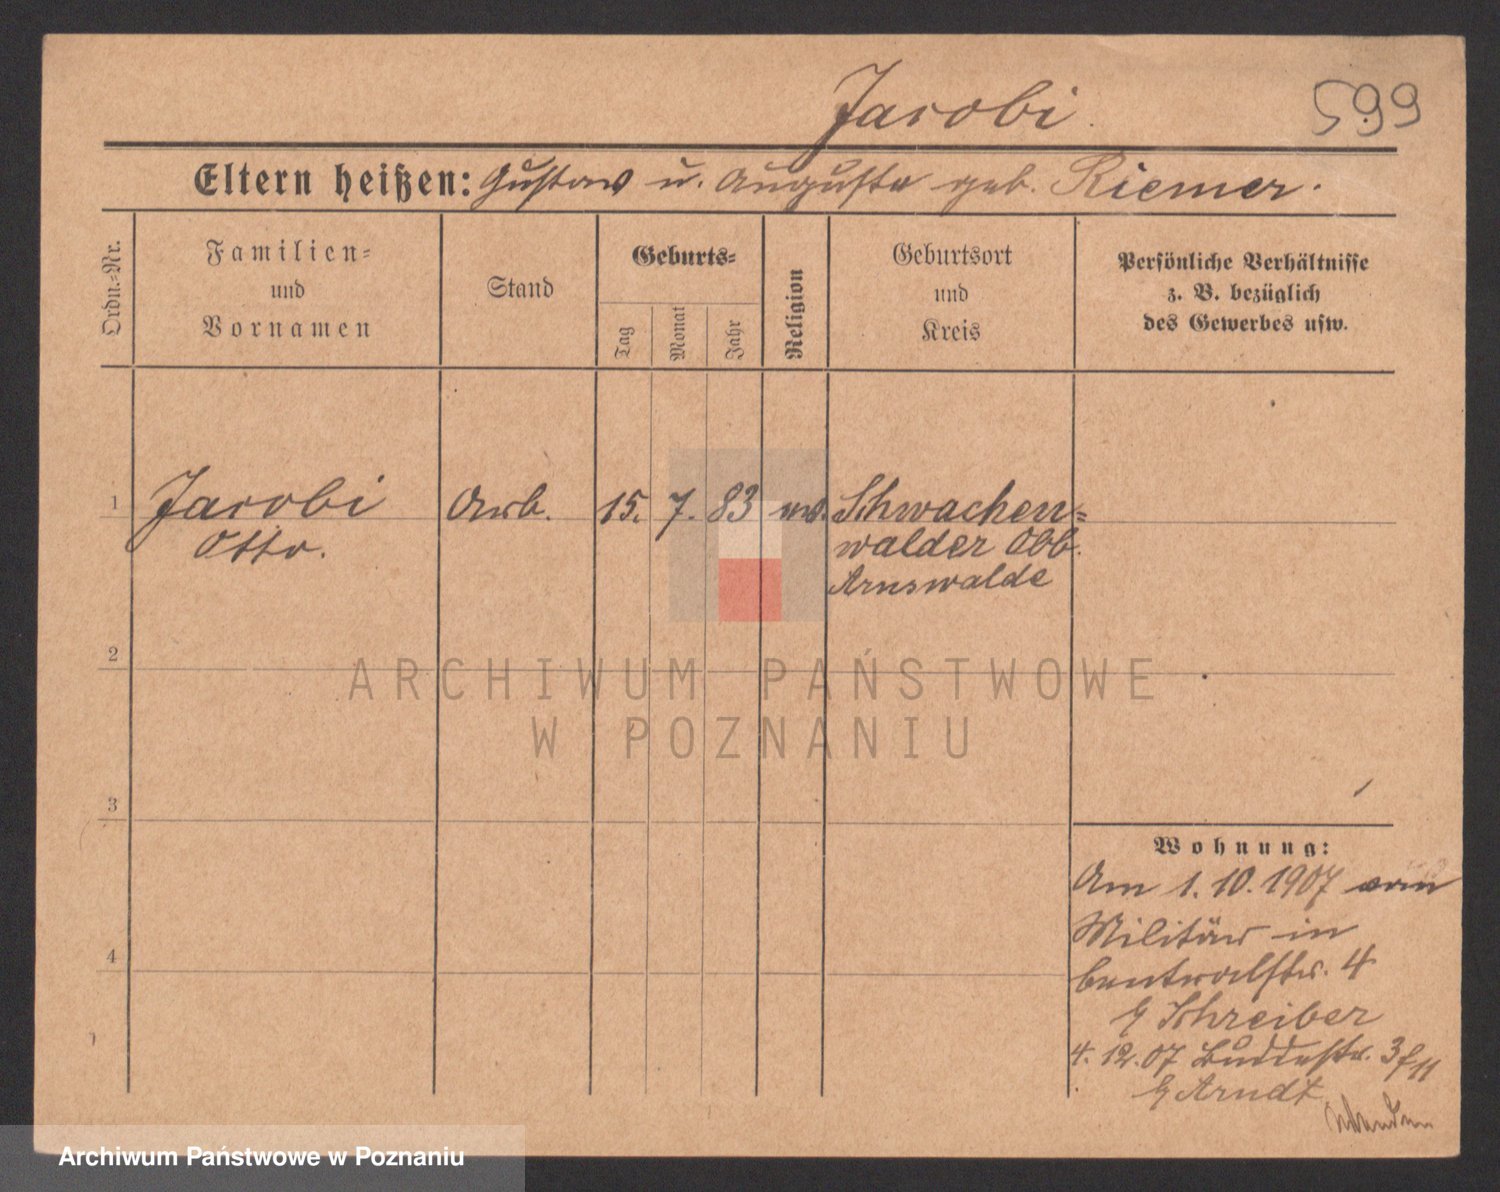 Jacobi.
599
Eltern heißen: Gustav u. Auguste geb. Riemer.
Ordn.-Nr.
Familien-
und
Vornamen
Stand
Geburts-
Tag
Monat
Jahr
Religion
Geburtsort
und
Kreis
Persönliche Verhältnisse
z. B. bezüglich
des Gewerbes usw.
1
Jacobi
Otto.
Arb.
15.
7.
83
ev.
Schwachen=
walder Obb.
Arnswalde
2
ARCHIWUM PAŃSTWOWE
W POZNANIU
3
4
Wohnung:
Am 1.10.1907 vom
Militär in
Centralstr. 4
b/ Schreiber
4.12.07 Buddestr. 3
b/ Arndt
Archiwum Państwowe w Poznaniu